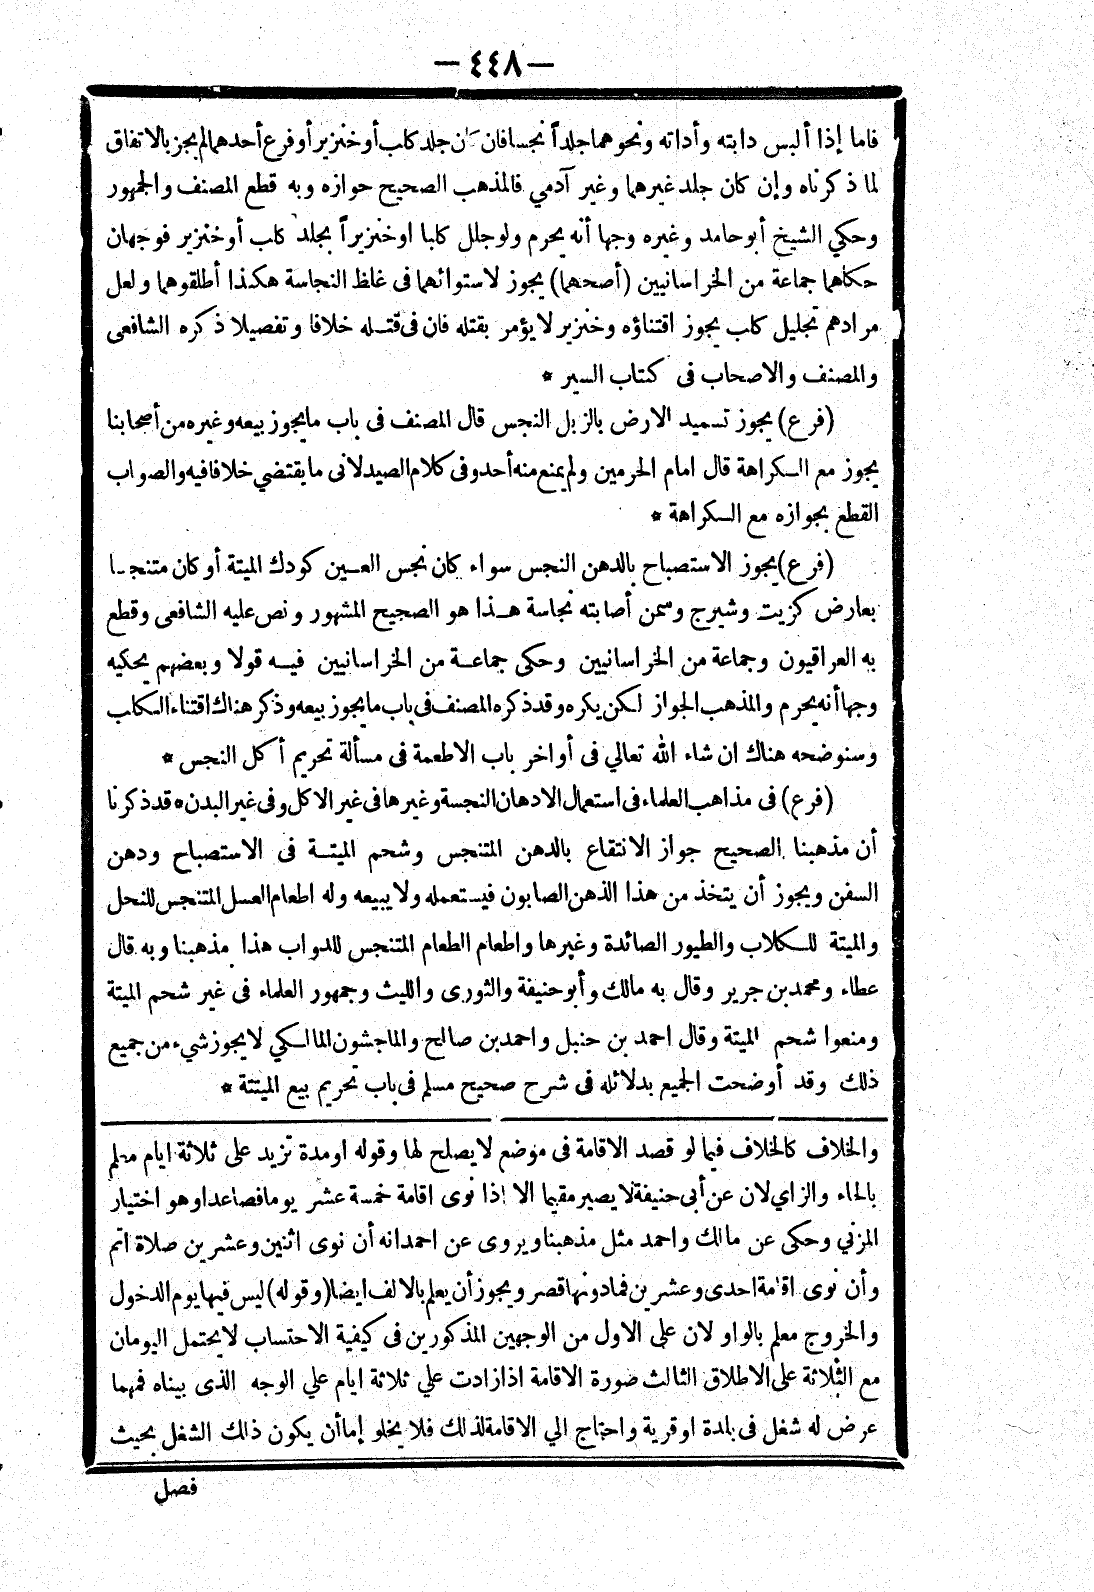 — ٤٤٨ —
فاما إذا ألبس دابته وأداته ونحوهما جلداً نجسا فان كان جلد كلب أو خنزير أو فرع أحدهما لم يجز بالاتفاق
لما ذكرناه وإن كان جلد غيرهما وغير آدمي فالمذهب الصحيح جوازه وبه قطع المصنف والجمهور
وحكي الشيخ أبو حامد وغيره وجها أنه يحرم ولو جلل كلبا او خنزيراً بجلد كلب أو خنزير فوجهان
حكاهما جماعة من الخراسانيين (أصحهما) يجوز لاستوائهما فى غلظ النجاسة هكذا أطلقوهما ولعل
مرادهم تجليل كلب يجوز اقتناؤه وخنزير لا يؤمر بقتله فان فى قتله خلافا وتفصيلا ذكره الشافعى
والمصنف والاصحاب فى كتاب السير *
(فرع) يجوز تسميد الارض بالزبل النجس قال المصنف فى باب ما يجوز بيعه وغيره من أصحابنا
يجوز مع الكراهة قال امام الحرمين ولم يمنع منه أحد وفى كلام الصيدلانى ما يقتضي خلافا فيه والصواب
القطع بجوازه مع الكراهة *
(فرع) يجوز الاستصباح بالدهن النجس سواء كان نجس العين كودك الميتة أو كان متنجسا
بعارض كزيت وشيرج وسمن أصابته نجاسة هذا هو الصحيح المشهور ونص عليه الشافعى وقطع
به العراقيون وجماعة من الخراسانيين وحكى جماعة من الخراسانيين فيه قولا وبعضهم يحكيه
وجها أنه يحرم والمذهب الجواز لكن يكره وقد ذكره المصنف فى باب ما يجوز بيعه وذكر هناك اقتناء الكلب
وسنوضحه هناك ان شاء الله تعالي فى أواخر باب الاطعمة فى مسألة تحريم أكل النجس *
(فرع) فى مذاهب العلماء فى استعمال الادهان النجسة وغيرها فى غير الاكل وفى غير البدن * قد ذكرنا
أن مذهبنا الصحيح جواز الانتقاع بالدهن المتنجس وشحم الميتة فى الاستصباح ودهن
السفن ويجوز أن يتخذ من هذا الدهن الصابون فيستعمله ولا يبيعه وله اطعام العسل المتنجس للنحل
والميتة للكلاب والطيور الصائدة وغيرها واطعام الطعام المتنجس للدواب هذا مذهبنا وبه قال
عطاء ومحمد بن جرير وقال به مالك وأبو حنيفة والثورى والليث وجمهور العلماء فى غير شحم الميتة
ومنعوا شحم الميتة وقال احمد بن حنبل واحمد بن صالح والماجشون المالكي لا يجوز شيء من جميع
ذلك وقد أوضحت الجميع بدلائله فى شرح صحيح مسلم فى باب تحريم بيع الميتتة *
والخلاف كالخلاف فيما لو قصد الاقامة فى موضع لا يصلح لها وقوله او مدة تزيد على ثلاثة ايام معلم
بالحاء والزاي لان عن أبى حنيفة لا يصير مقيما الا اذا نوى اقامة خمسة عشر يوما فصاعدا وهو اختيار
المزني وحكى عن مالك واحمد مثل مذهبنا ويروى عن احمد انه أن نوى اثنين وعشرين صلاة اتم
وأن نوى اقامة احدى وعشرين فما دونها قصر ويجوز أن يعلم بالالف ايضا (وقوله) ليس فيها يوم الدخول
والخروج معلم بالواو لان على الاول من الوجهين المذكورين فى كيفية الاحتساب لا يحتمل اليومان
مع الثلاثة على الاطلاق الثالث صورة الاقامة اذا زادت علي ثلاثة ايام علي الوجه الذى بيناه فمهما
عرض له شغل فى بلدة او قرية واحتاج الي الاقامة لذلك فلا يخلو إما أن يكون ذلك الشغل بحيث
فصل